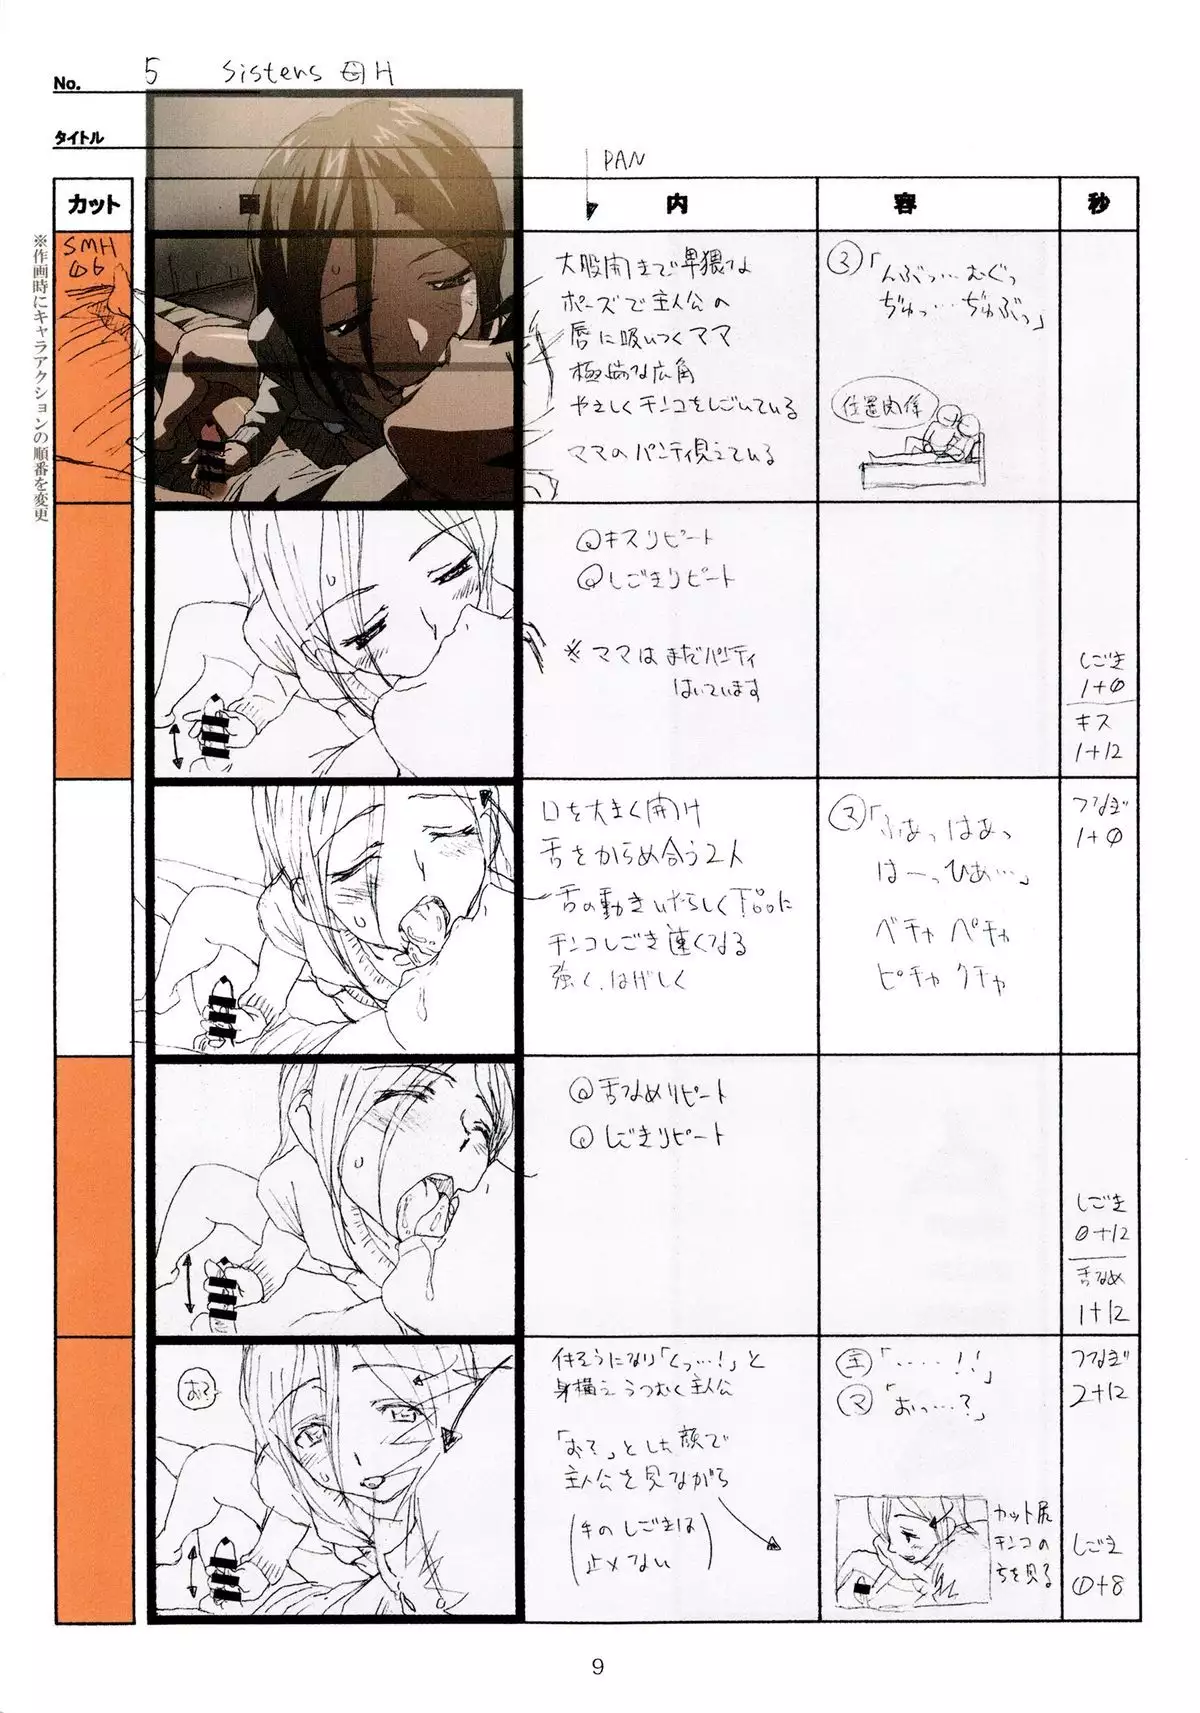 No. 5 Sisters 母H
タイトル
PAN
カット 画面 内 容 秒
※作画時にキャラアクションの順番を変更
SMH
06
大股開きで卑猥な
ポーズで主人公の
唇に吸いつくママ
極端な広角
やさしくチンコをしごいている
ママのパンティ見えている
マ「んぶっ…むぐっ
ぢゅっ…ぢゅぶっ」
位置関係
キスリピート
しごきリピート
※ママはまだパンティ
はいています
しごき
1+0
キス
1+12
口を大きく開け
舌をからめ合う2人
舌の動きいやらしく
チンコしごき速くなる
強く、はげしく
マ「ふあっはあっ
はーっひあ…」
ベチャ ペチャ
ピチャ クチャ
つなぎ
1+0
舌なめリピート
しごきリピート
しごき
0+12
舌なめ
1+12
イキそうになり「くっ…!」と
身構え うつむく主人公
「おっ」とした顔で
主人公を見ながら
(手のしごきは
止メない)
主「……!!」
マ「おっ…?」
カット尻
チンコの
方を見る
つなぎ
2+12
しごき
0+8
9